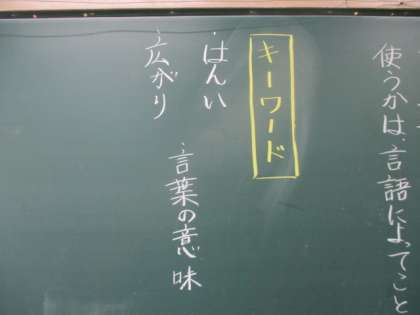 使うかは、言語によってこと
キーワード
・はんい
・広がり
・言葉の意味